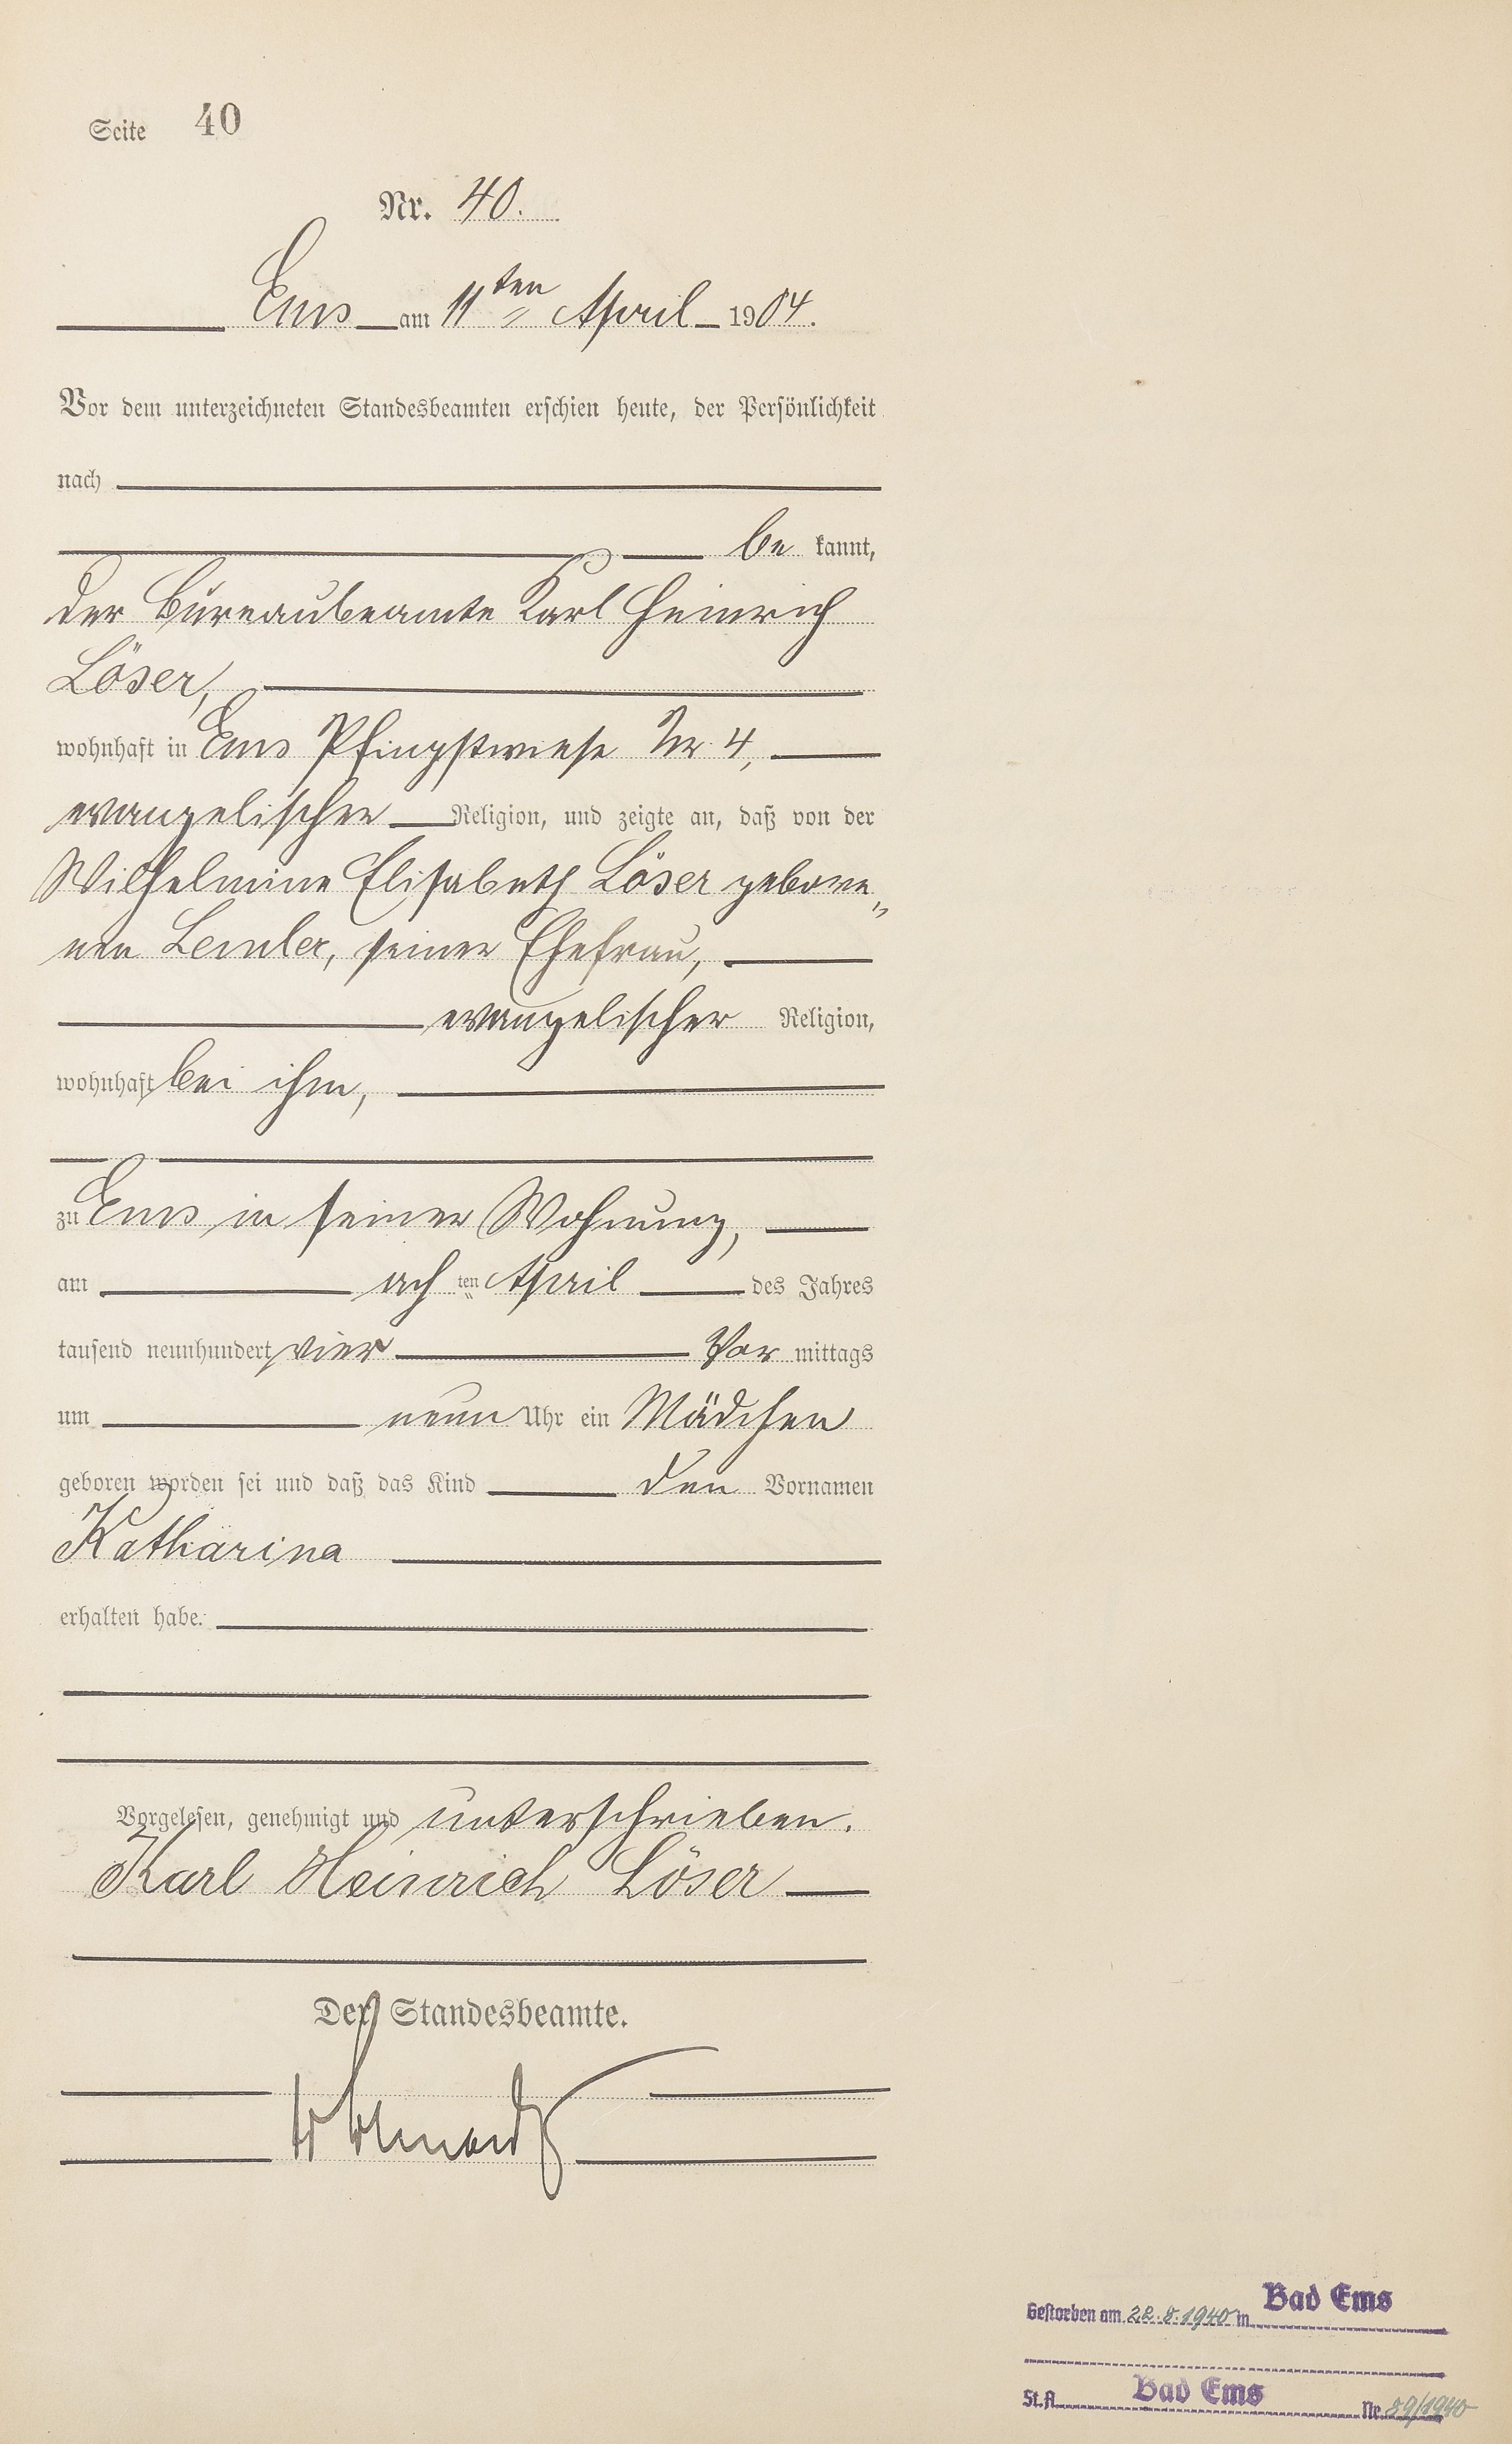 Seite 40
Nr. 40.
Ems am 11ten April 1904.
Vor dem unterzeichneten Standesbeamten erschien heute, der Persönlichkeit
nach
be kannt,
der Bureaubeamte Karl Heinrich
Löser,
wohnhaft in Ems Pfingstwiese Nr. 4,
evangelischer Religion, und zeigte an, daß von der
Wilhelmine Elisabeth Löser gebore„
nen Lemler, seiner Ehefrau,
evangelischer Religion,
wohnhaft bei ihm,
zu Ems in seiner Wohnung,
am ach ten April des Jahres
tausend neunhundert vier Vor mittags
um neun Uhr ein Mädchen
geboren worden sei und daß das Kind den Vornamen
Katharina
erhalten habe.
Vorgelesen, genehmigt und unterschrieben.
Karl Heinrich Löser
Der Standesbeamte.
Gestorben am 22.8.1940 in Bad Ems
St.A. Bad Ems Nr. 89/1940